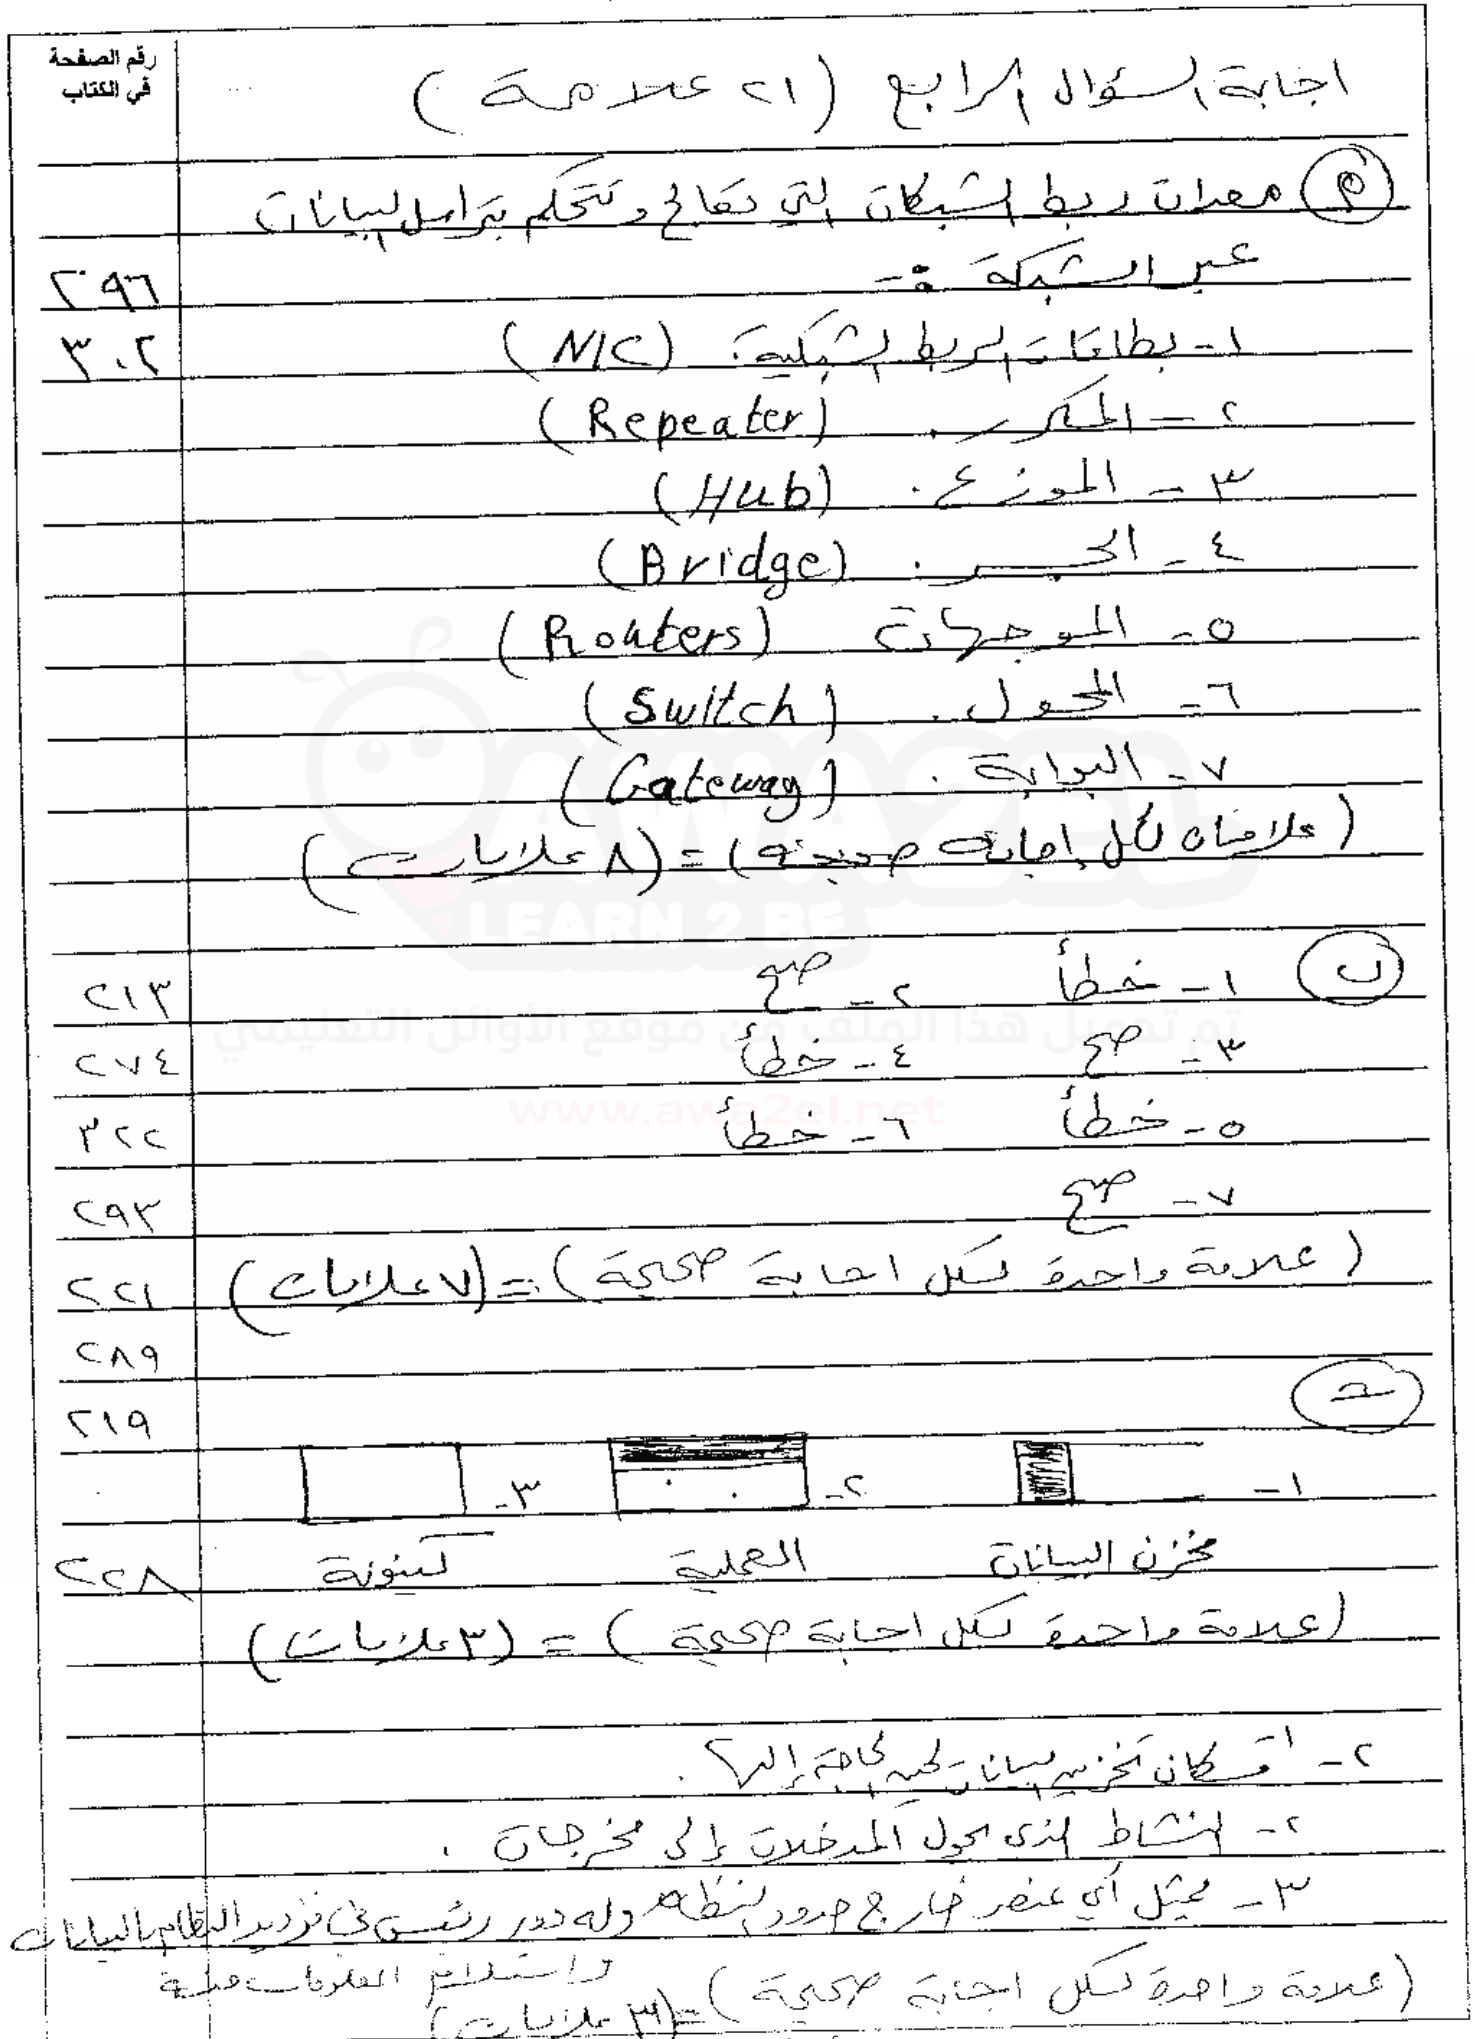 رقم الصفحة
في الكتاب
اجابة السؤال الرابع (٢١ علامة)
٢٩٦
٣٠٢
أ معدات ربط الشبكات التي تعالج وتتحكم بتراسل البيانات
عبر الشبكة :-
١- بطاقات الربط الشبكية. (NIC)
٢- المكرر. (Repeater)
٣- الموزع. (Hub)
٤- الجسر. (Bridge)
٥- الموجهات (Routers)
٦- المحول. (Switch)
٧- البوابة. (Gateway)
(علامتان لكل إجابة صحيحة) = (٨ علامات)
٢١٣
٢٧٤
٣٢٢
٢٩٣
٢٢١
٢٨٩
٢١٩
ب ١- خطأ ٢- صح
٣- صح ٤- خطأ
٥- خطأ ٦- خطأ
٧- صح
(علامة واحدة لكل اجابة صحيحة) = (٧ علامات)
ج
١- ٢- ٣-
٢٢٨
مخزن البيانات العملية كينونة
(علامة واحدة لكل اجابة صحيحة) = (٣ علامات)
٢- ١- مكان تخزين البيانات لحين الحاجة إليها.
٢- النشاط الذي يحول المدخلات إلى مخرجات.
٣- يمثل أي عنصر خارج حدود النظام وله دور رئيسي في تزويد النظام بالبيانات
واستلام المعلومات منه
(علامة واحدة لكل اجابة صحيحة) = (٣ علامات)
AWA2EL
LEARN 2 BE
تم تحميل هذا الملف من موقع الأوائل التعليمي
www.awa2el.net